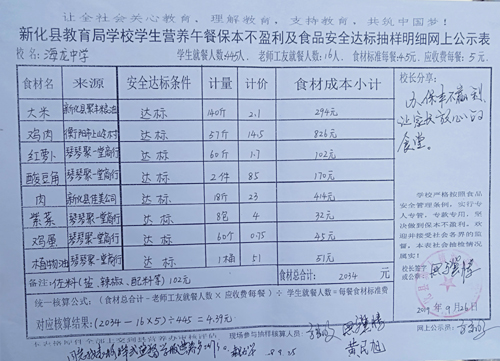 让全社会关心教育、理解教育、支持教育，共筑中国梦！
新化县教育局学校学生营养午餐保本不盈利及食品安全达标抽样明细网上公示表
校名：海龙中学 学生就餐人数：445人、老师工友就餐人数：16人、食材标准每餐：4.5元、应收费每餐：5元、
食材名 来源 安全达标条件 计量 计价 食材成本小计
大米 新化县聚丰粮油 达标 140斤 2.1 294元
鸡肉 达标 57斤 14.5 826元
红萝卜 琴琴聚一堂商行 达标 60斤 1.7 102元
酸豆角 琴琴聚一堂商行 达标 2件 85 170元
肉 新化县佳美公司 达标 18斤 23 414元
紫菜 琴琴聚一堂商行 达标 8包 4 32元
鸡蛋 琴琴聚一堂商行 达标 60个 0.75 45元
植物油 琴琴聚一堂商行 达标 1桶 51 51元
备注：佐料(盐、辣椒、配料等)102元 食材总合计： 2034 元
统一核算公式：(食材总合计-老师工友就餐人数×应收费每餐)÷学生就餐人数=每餐食材标准费
对应核算结果：(2034-16×5)÷445=4.39元
现场参与抽样核算人员：
校长分享：
办保本不盈利，
让家长放心的
食堂。
学校严格按照食品
安全管理条例，实行专
人专管、专款专用，坚
决做到保本不盈利，欢
迎并接受社会各界的监
督，本表社会抽检情况
属实！
校长签字
或公章：
2019年9月26日
网上公示员：